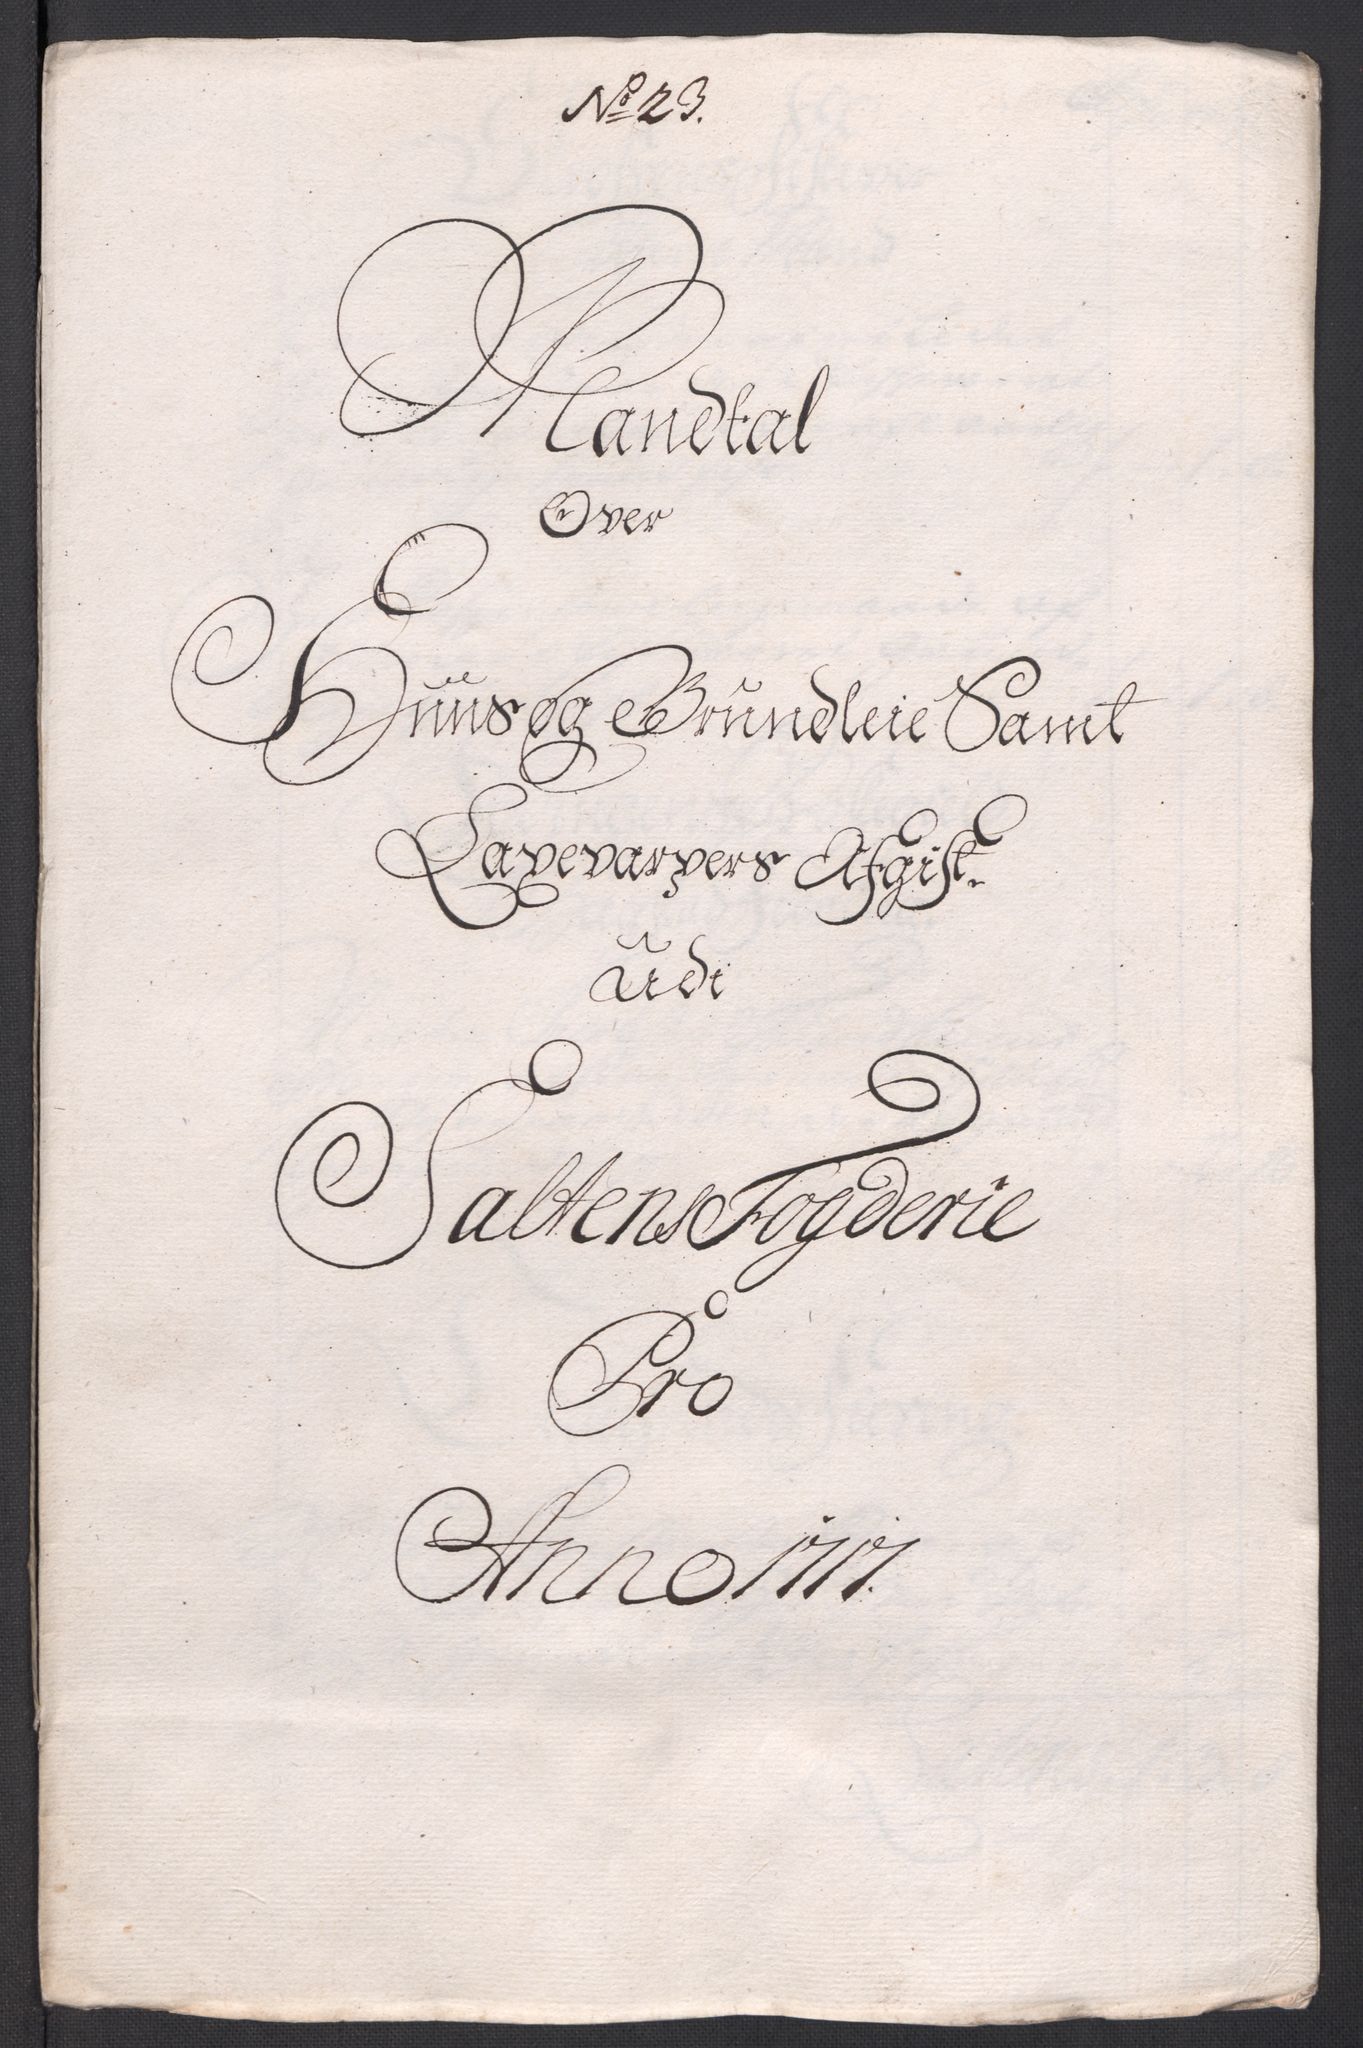 No 23.
Mandtal
Over
Huus og Grundleie Samt
Laxevarpers Afgift.
Udi
Saltens Fogderie
Pro
Anno 1717.